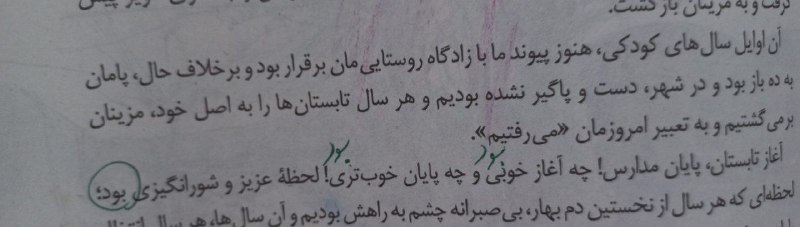 گرفت و به مزینان باز گشت.
آن اوایل سال‌های کودکی، هنوز پیوند ما با زادگاه روستایی‌مان برقرار بود و برخلاف حال، پامان
به ده باز بود و در شهر، دست و پاگیر نشده بودیم و هر سال تابستان‌ها را به اصل خود، مزینان
برمی‌گشتیم و به تعبیر امروزمان «می‌رفتیم».
بود بود
آغاز تابستان، پایان مدارس! چه آغاز خوبی و چه پایان خوب‌تری! لحظهٔ عزیز و شورانگیزی بود؛
لحظه‌ای که هر سال از نخستین دم بهار، بی‌صبرانه چشم به راهش بودیم و آن سال‌ها، هر سال